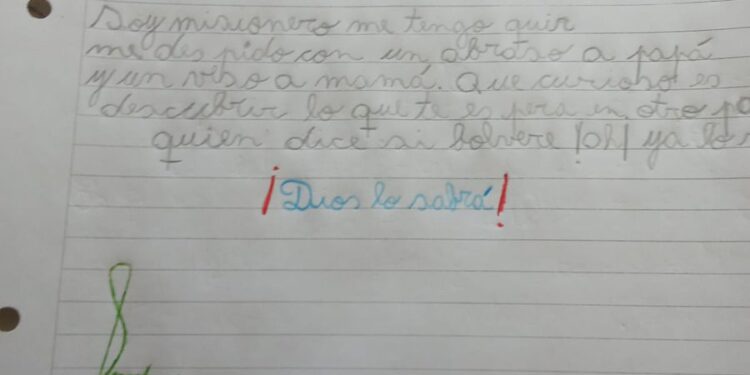 Soy misionero me tengo quir
me des pido con un abraso a papá
y un veso a mamá. Que curioso es
descubrir lo que te es pera en otro pa
quien dice si bolvere ¡oh! ya lo s
¡Dios lo sabrá!